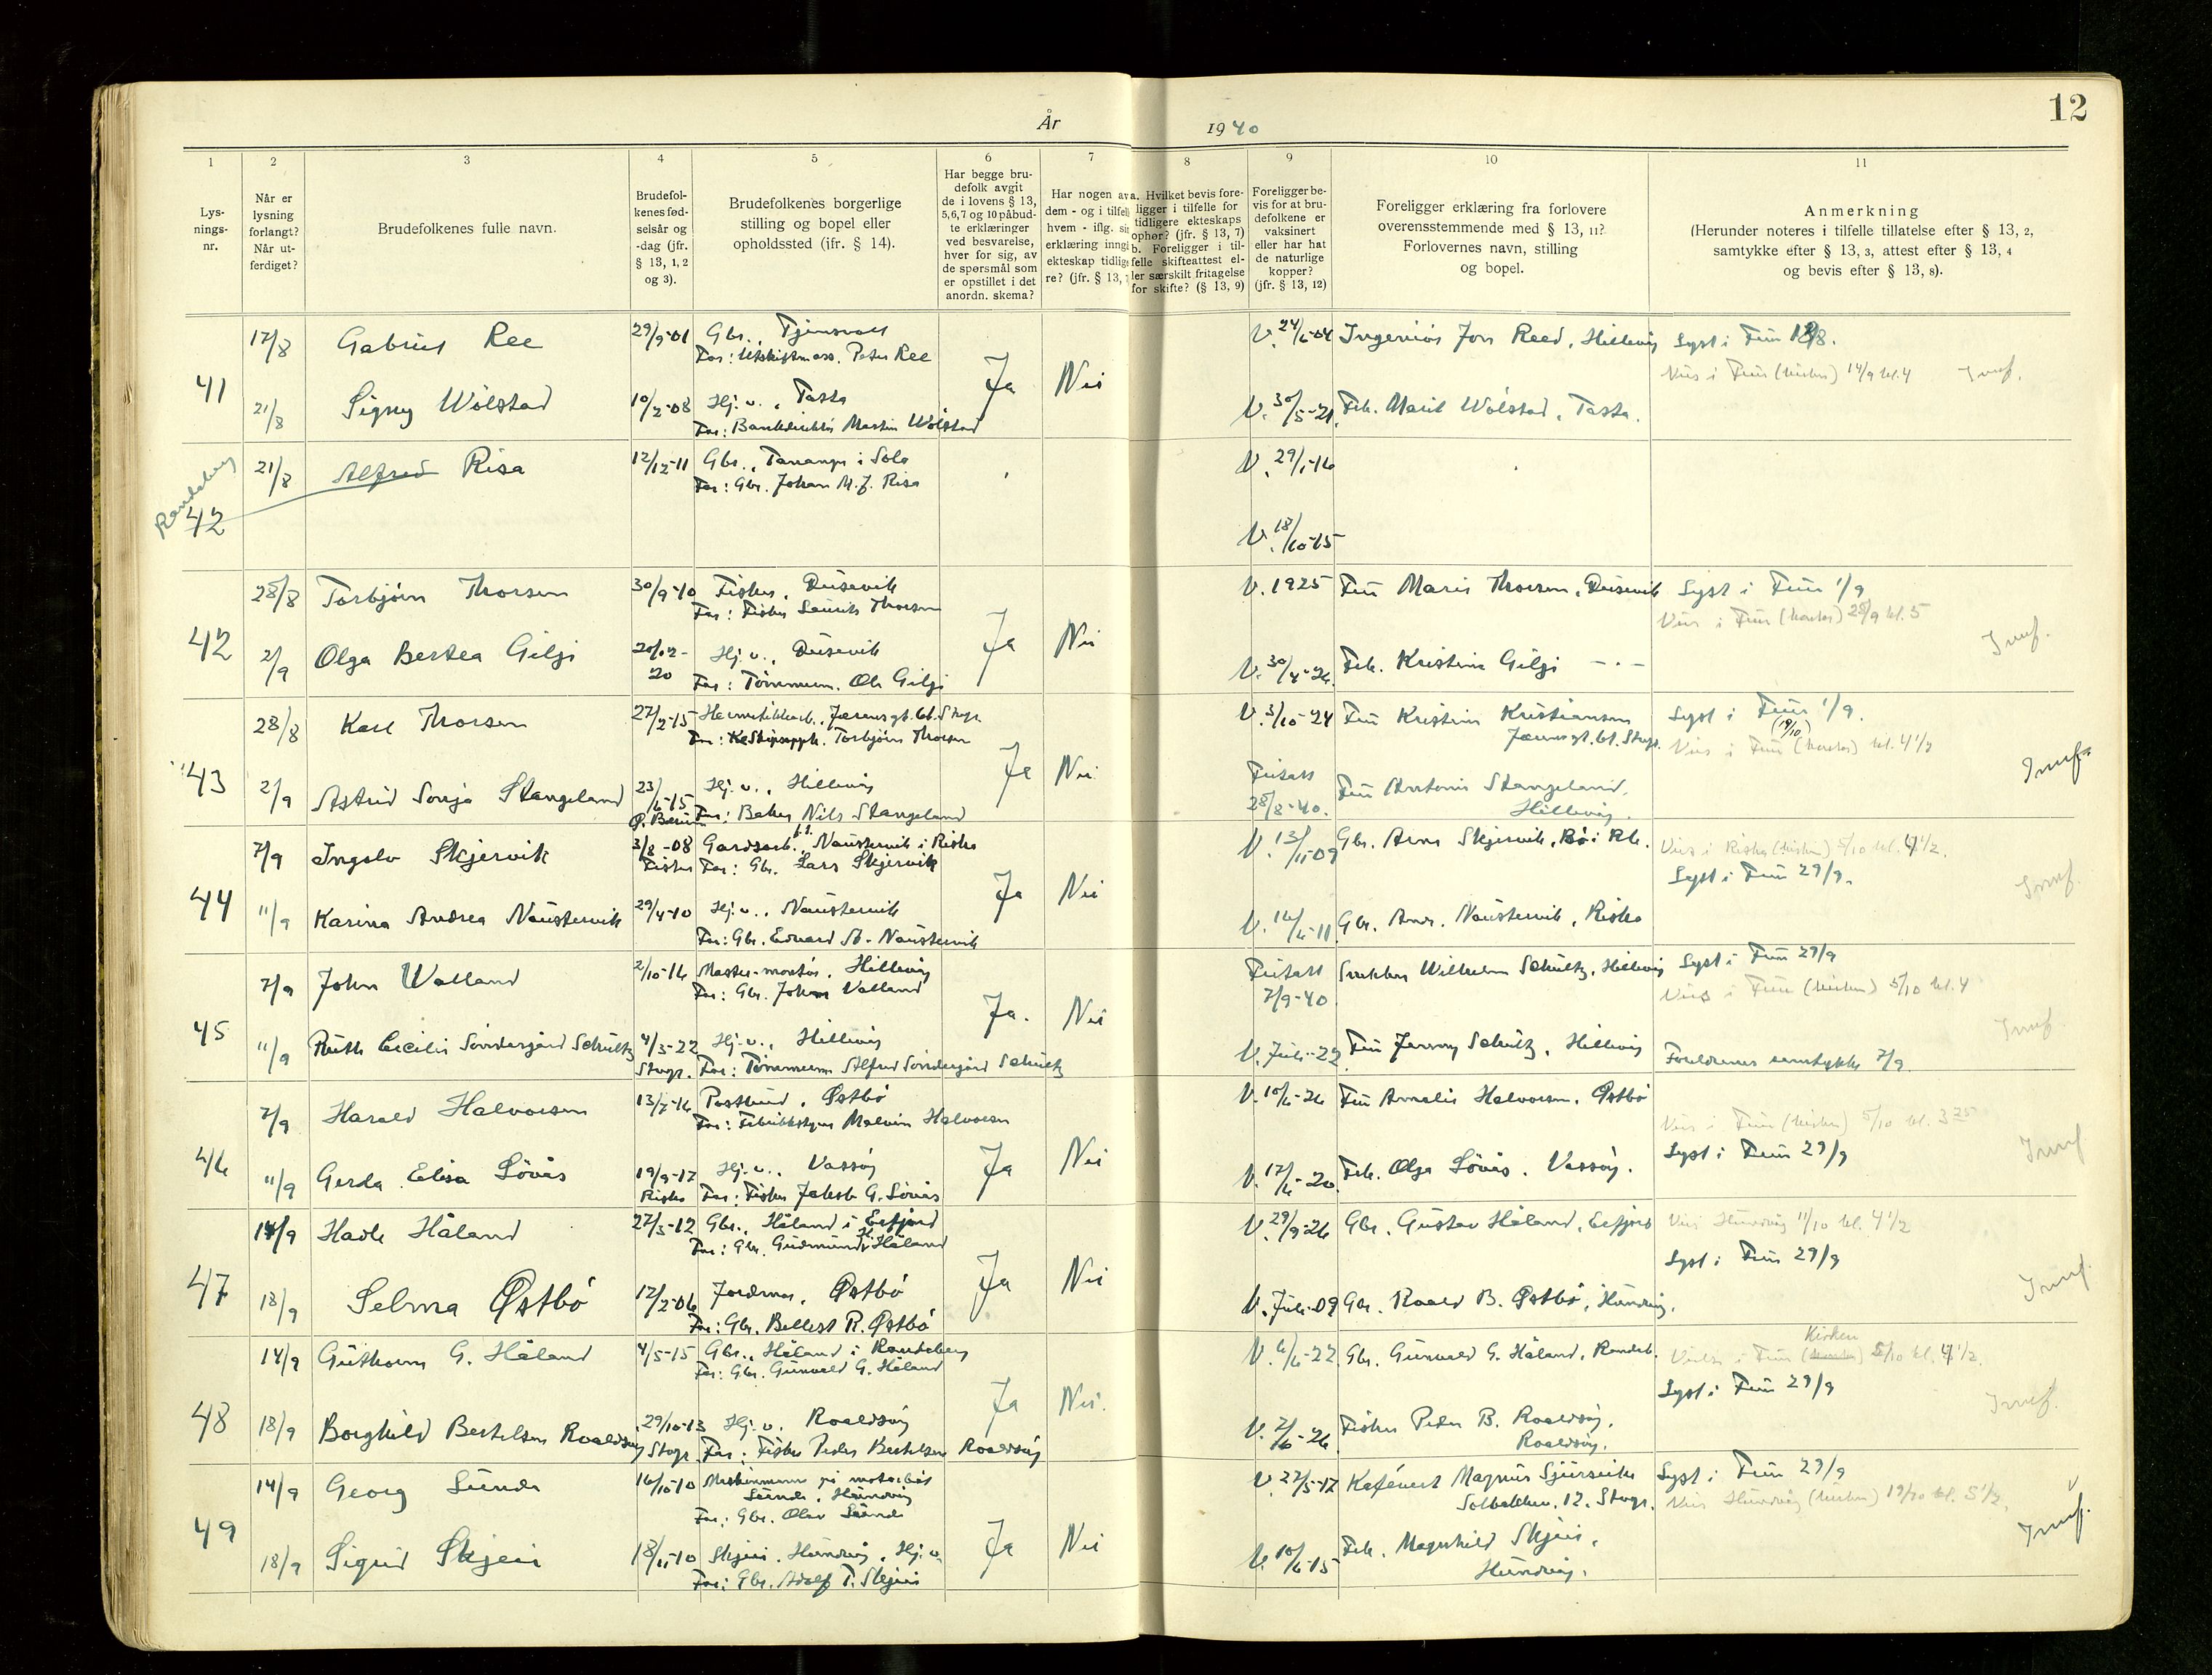 12
År 1940
1 2 3 4 5 6 7 8 9 10 11
Lys-
nings-
nr.
Når er
lysning
forlangt?
Når ut-
ferdiget?
Brudefolkenes fulle navn.
Brudefol-
kenes fød-
selsår og
-dag (jfr.
§ 13, 1, 2
og 3).
Brudefolkenes borgerlige
stilling og bopel eller
opholdssted (jfr. § 14).
Har begge bru-
defolk avgit
de i lovens § 13,
5, 6, 7 og 10 påbud-
te erklæringer
ved besvarelse,
hver for sig, av
de spørsmål som
er opstillet i det
anordn. skema?
Har nogen av
dem - og i tilfelle
hvem - iflg. sin
erklæring inngå
ekteskap tidlige
re? (jfr. § 13,
a. Hvilket bevis fore-
ligger i tilfelle for
tidligere ekteskaps
ophør? (jfr. § 13, 7)
b. Foreligger i til-
felle skifteattest el-
ler særskilt fritagelse
for skifte? (§ 13, 9)
Foreligger be-
vis for at bru-
defolkene er
vaksinert
eller har hat
de naturlige
kopper?
(jfr. § 13, 12)
Foreligger erklæring fra forlovere
overensstemmende med § 13, 11?
Forlovernes navn, stilling
og bopel.
Anmerkning
(Herunder noteres i tilfelle tillatelse efter § 13, 2,
samtykke efter § 13, 3, attest efter § 13, 4
og bevis efter § 13, 8).
41
17/8 Gabriel Ree 29/9-01 Gbr.,
Peter Ree
Ja Nei
V. 24/6-04 Ingeniør Jon Reed, Hillevåg Lyst i Fru 18/8.
Vies i Fru (kirken) 14/9 kl. 4
21/8 Signy Wølstad 10/2-08 Hj. v., Tasta
Far: Bankdirektør Martin Wølstad
V. 30/5-21 Frk. Marit Wølstad, Tasta.
Randaberg
42
21/8 Alfred Risa 12/12-11 Gbr., Tananger i Sola
Far: Gbr. Johan M. J. Risa
V. 29/1-16
V. 18/10-15
42
28/8 Torbjørn Thorsen 30/9-10 Fisker, Dusevik
Far: Fisker Laurits Thorsen
Ja Nei
V. 1925 Fru Marie Thorsen, Dusevik Lyst i Fru 1/9
Vies i Fru 28/9 kl. 5
2/9 Olga Bertea Gilje 20/12-20 Hj. v., Dusevik
Far: Tømmerm. Ole Gilje
V. 30/4-26 Frk. Kristine Gilje -"-
43
28/8 Karl Thorsen 27/2-15
Torbjørn Thorsen
Ja Nei
V. 3/10-24 Fru Kristine Kristiansen Lyst i Fru 1/9.
(19/10)
Vies i Fru kl. 4 1/2
2/9 Astrid Sonja Stangeland 23/6-15 Hj. v., Hillevåg
Far: Baker Nils Stangeland
Friatt. 28/8-40. Fru Antonie Stangeland,
Hillevåg.
44
7/9 Ingolv Skjervik 3/8-08 Gardsarb., Naustervik i Riska
Far: Gbr. Lars Skjervik
Ja Nei
V. 13/11-09 Gbr. Arne Skjervik, Bø i Rb. Vies i Riska (kirken) 5/10 kl. 4 1/2.
Lyst i Fru 29/9.
11/9 Karina Andrea Naustervik 29/4-10 Hj. v., Naustervik
Far: Gbr. Edvard A. Naustervik
V. 16/6-11 Gbr. Andr. Naustervik, Riska
45
7/9 John Walland 2/10-16 Hillevåg
Far: Gbr. Johan Valland
Ja. Nei
Friatt. 7/9-40 Snekker Wilhelm Schultz, Hillevåg Lyst i Fru 29/9
Vies i Fru (kirken) 5/10 kl. 4
11/9 Ruth Cecilie Søndergård Schultz 4/3-22 Hj. v., Hillevåg
Stvgr. Far: Tømmerm Alfred Søndergård Schultz
V. Juli-22 Fru Jenny Schultz, Hillevåg Foreldrenes samtykke 7/9.
46
7/9 Harald Halvorsen 13/7-16 Postbud, Østbø
Far: Fabrikkbestyrer Malvin Halvorsen
Ja Nei
V. 10/6-26 Fru Amalie Halvorsen, Østbø
Vies i Fru (kirken) 5/10 kl. 3
Lyst i Fru 29/9
11/9 Gerda Elisa Løvås 19/9-17 Hj. v., Vassøy
Riska Far: Fisker Jakob G. Løvås
V. 17/6-20. Frk. Olga Løvås, Vassøy.
47
14/9 Hadle Håland 27/3-12 Gbr., Håland i Erfjord
Far: Gbr. Gudmund Håland
Ja Nei
V. 29/9-26 Gbr. Gustav Håland, Erfjord Vies Hundvåg 11/10 kl. 4 1/2
Lyst i Fru 29/9
18/9 Selma Østbø 12/2-06 Jordmor, Østbø
Far: Gbr. Bellest R. Østbø
V. Juli-09 Gbr. Roald B. Østbø, Hundvåg.
48
14/9 Guthorm G. Håland 4/5-15 Gbr., Håland i Randaberg
Far: Gbr. Gunvald G. Håland
Ja Nei.
V. 6/6-22 Gbr. Gunvald G. Håland, Randab. Kirken
Vies i Fru 5/10 kl. 4 1/2.
Lyst i Fru 29/9
18/9 Borghild Bertelsen Roaldsøy 29/10-13 Hj. v. Roaldsøy
Stvgr. Far: Fisker Peder Bertelsen Roaldsøy
V. 7/6-26 Fisker Peder B. Roaldsøy,
Roaldsøy.
49
14/9 Georg Sunde 16/10-10 Maskinmann på motorbåt
Sunde, Hundvåg
Far: Gbr. Olav Sunde
Ja Nei
V. 27/5-17 Magnus Lyst i Fru 29/9
Solbakken, 12. Stvgr. Vies Hundvåg (kirken) 19/10 kl. 5 1/2.
18/9 Sigrid Skjeie 18/11-10 Skjeie, Hundvåg, Hj. v.
Far: Gbr. Adolf T. Skjeie
V. 10/6-15 Frk. Magnhild Skjeie,
Hundvåg.